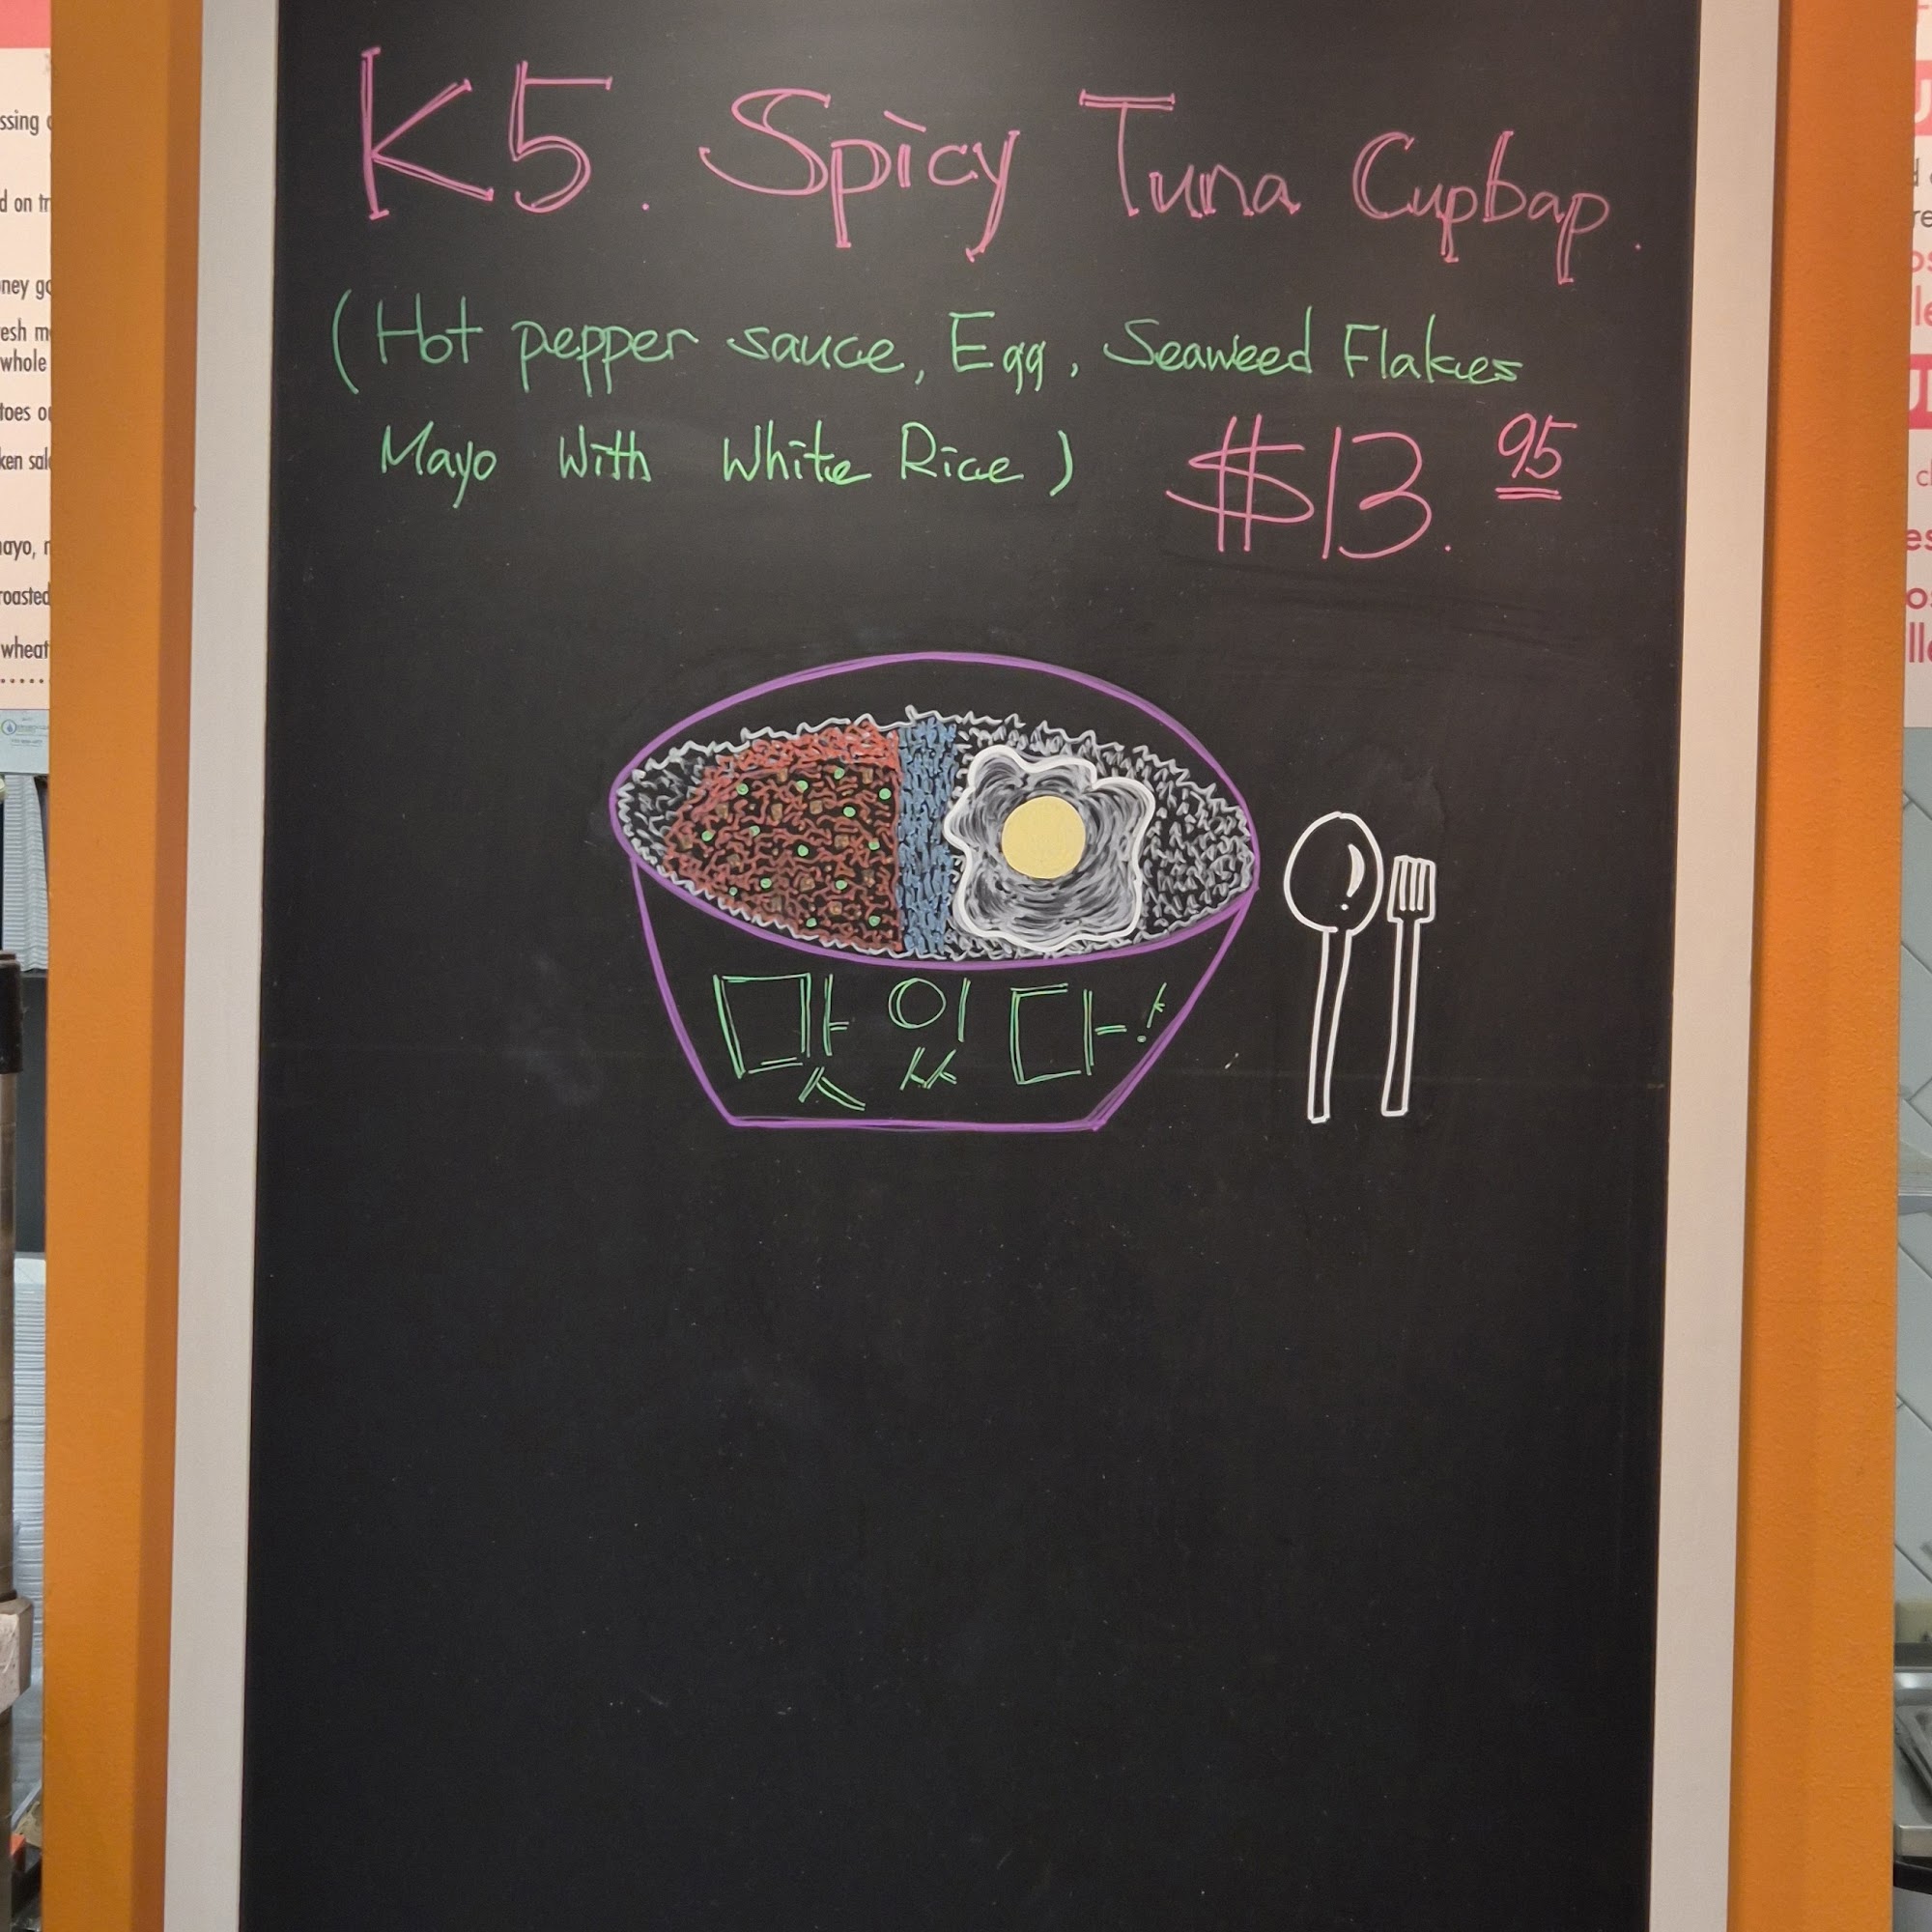 K5. Spicy Tuna Cupbap.
(Hot pepper sauce, Egg, Seaweed Flakes
Mayo With White Rice) $13.95
맛있다!
ssing
d on
ney
esh
whole
toes
ken
mayo,
roasted
wheat